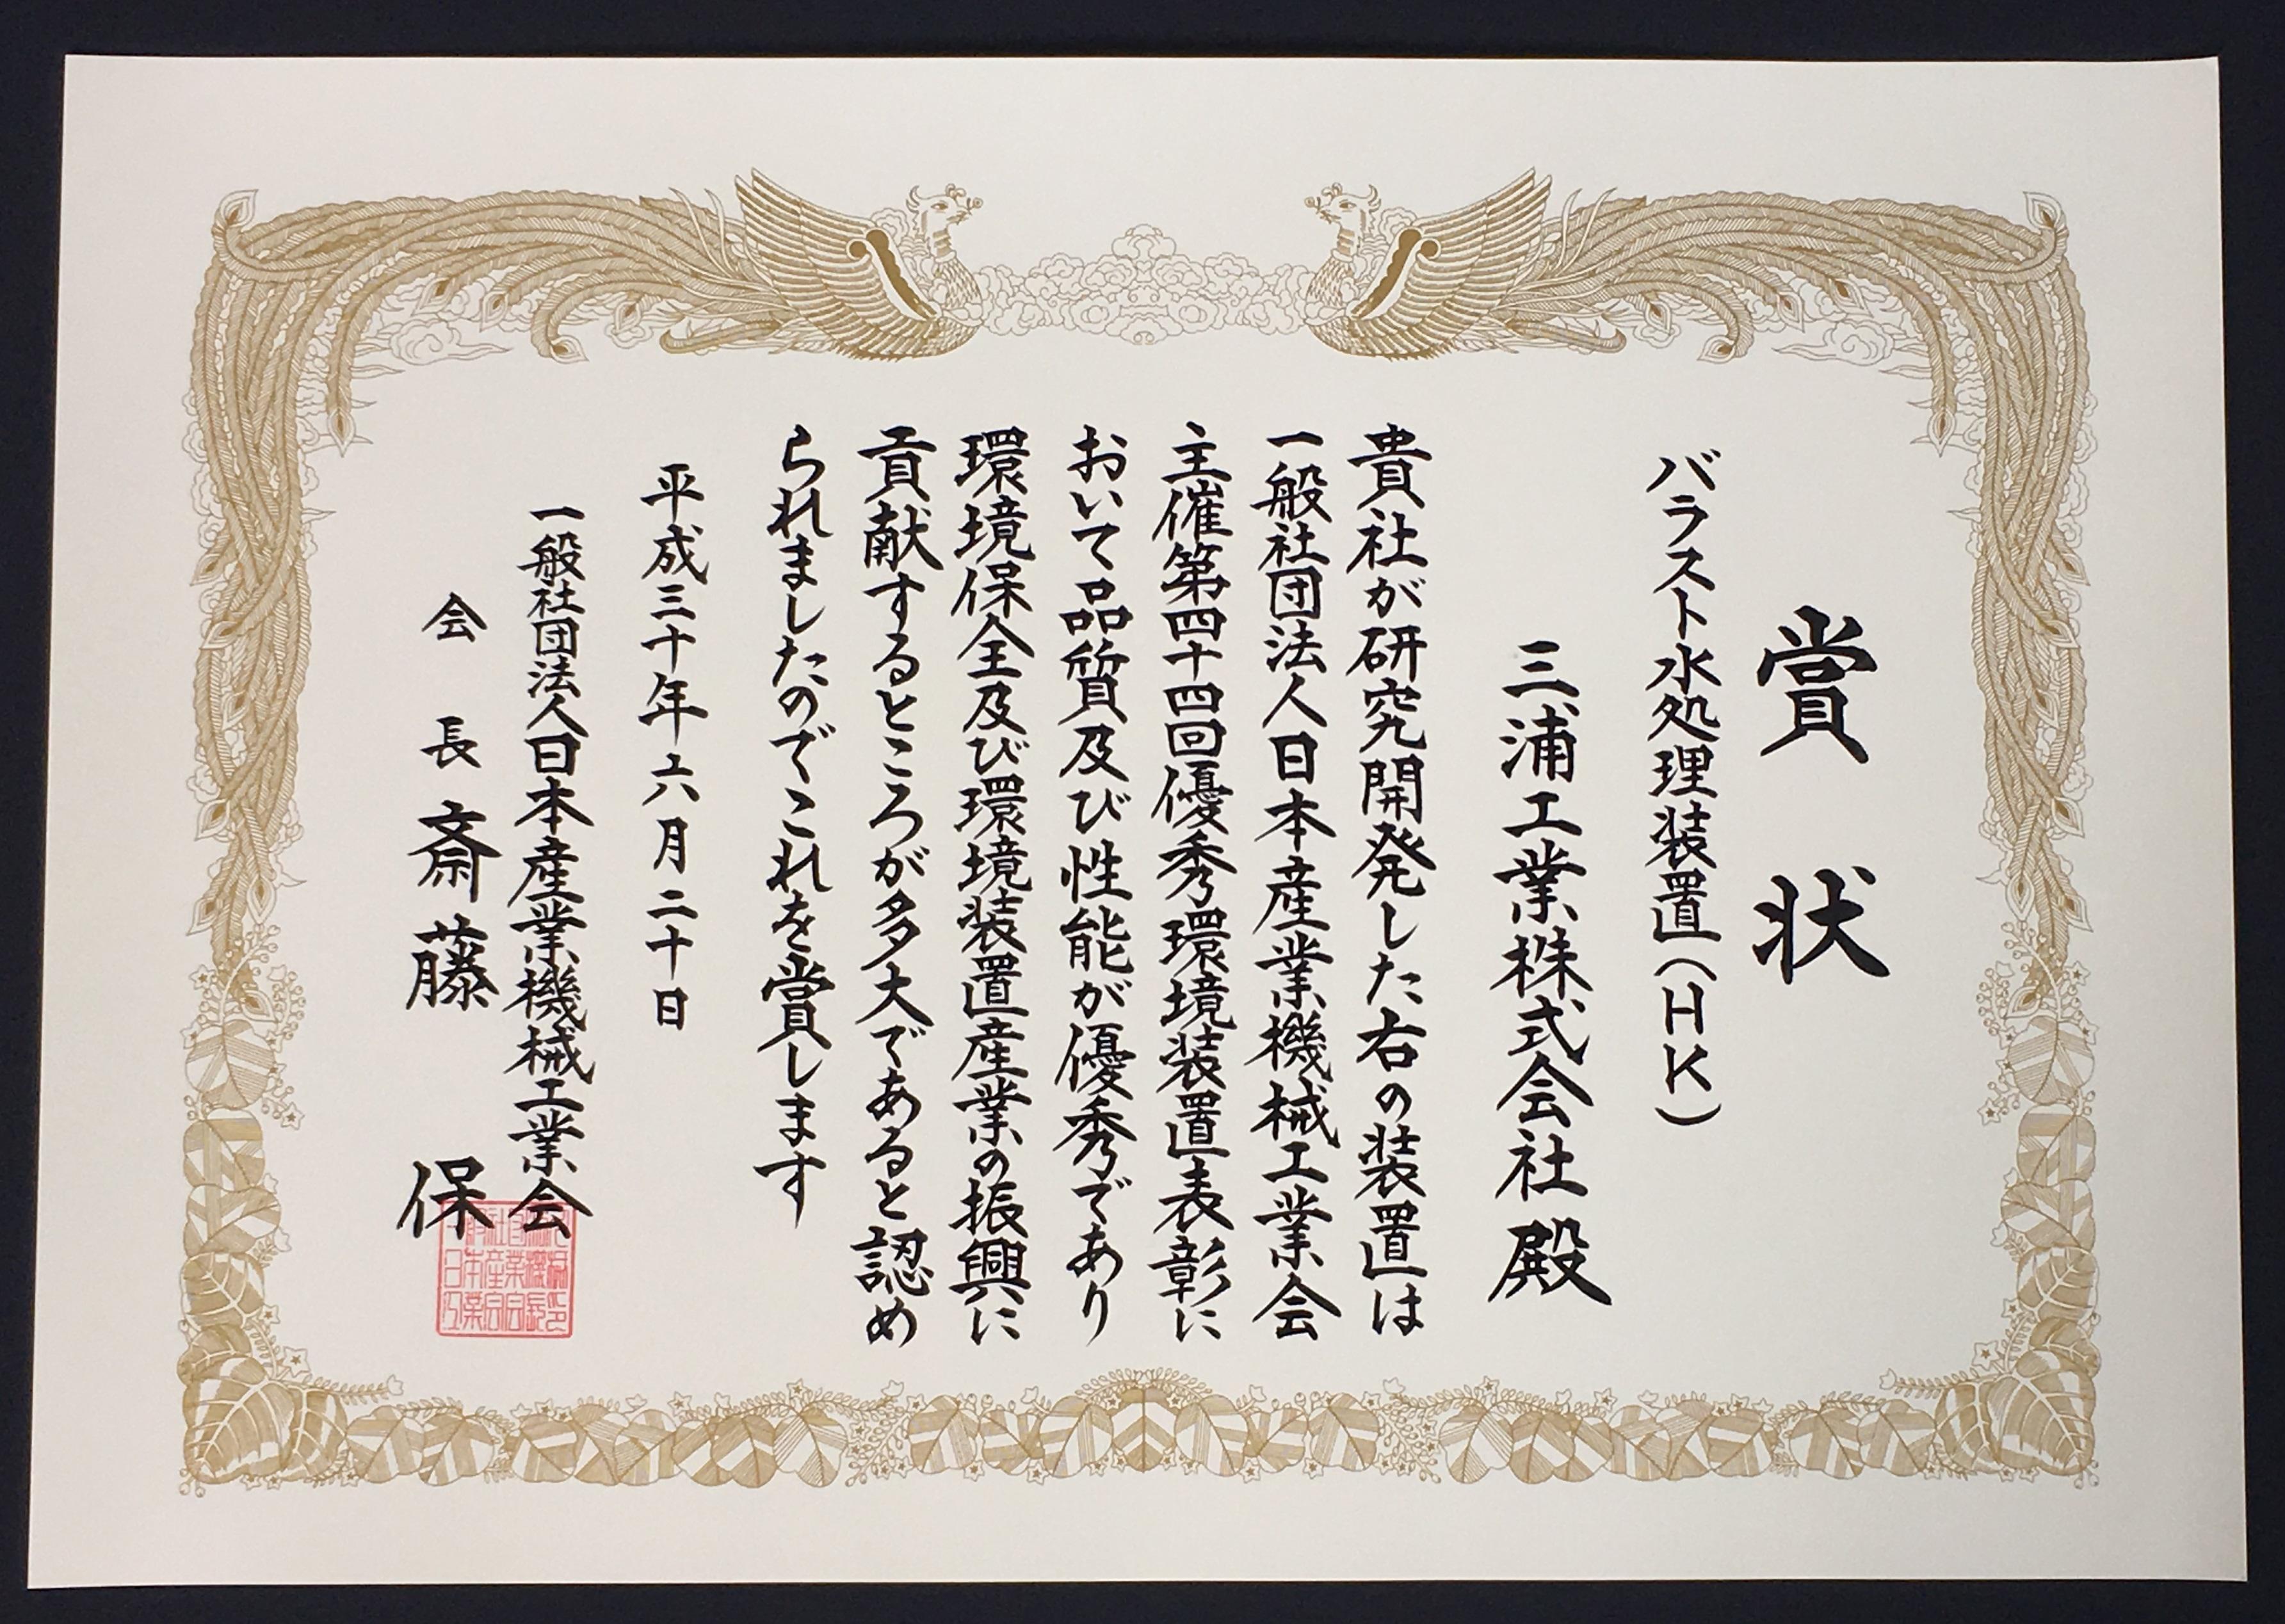 賞状
バラスト水処理装置（ＨＫ）
三浦工業株式会社殿
貴社が研究開発した右の装置は
一般社団法人日本産業機械工業会
主催第四十四回優秀環境装置表彰に
おいて品質及び性能が優秀であり
環境保全及び環境装置産業の振興に
貢献するところが多大であると認め
られましたのでこれを賞します
平成三十年六月二十日
一般社団法人日本産業機械工業会
会長斎藤保